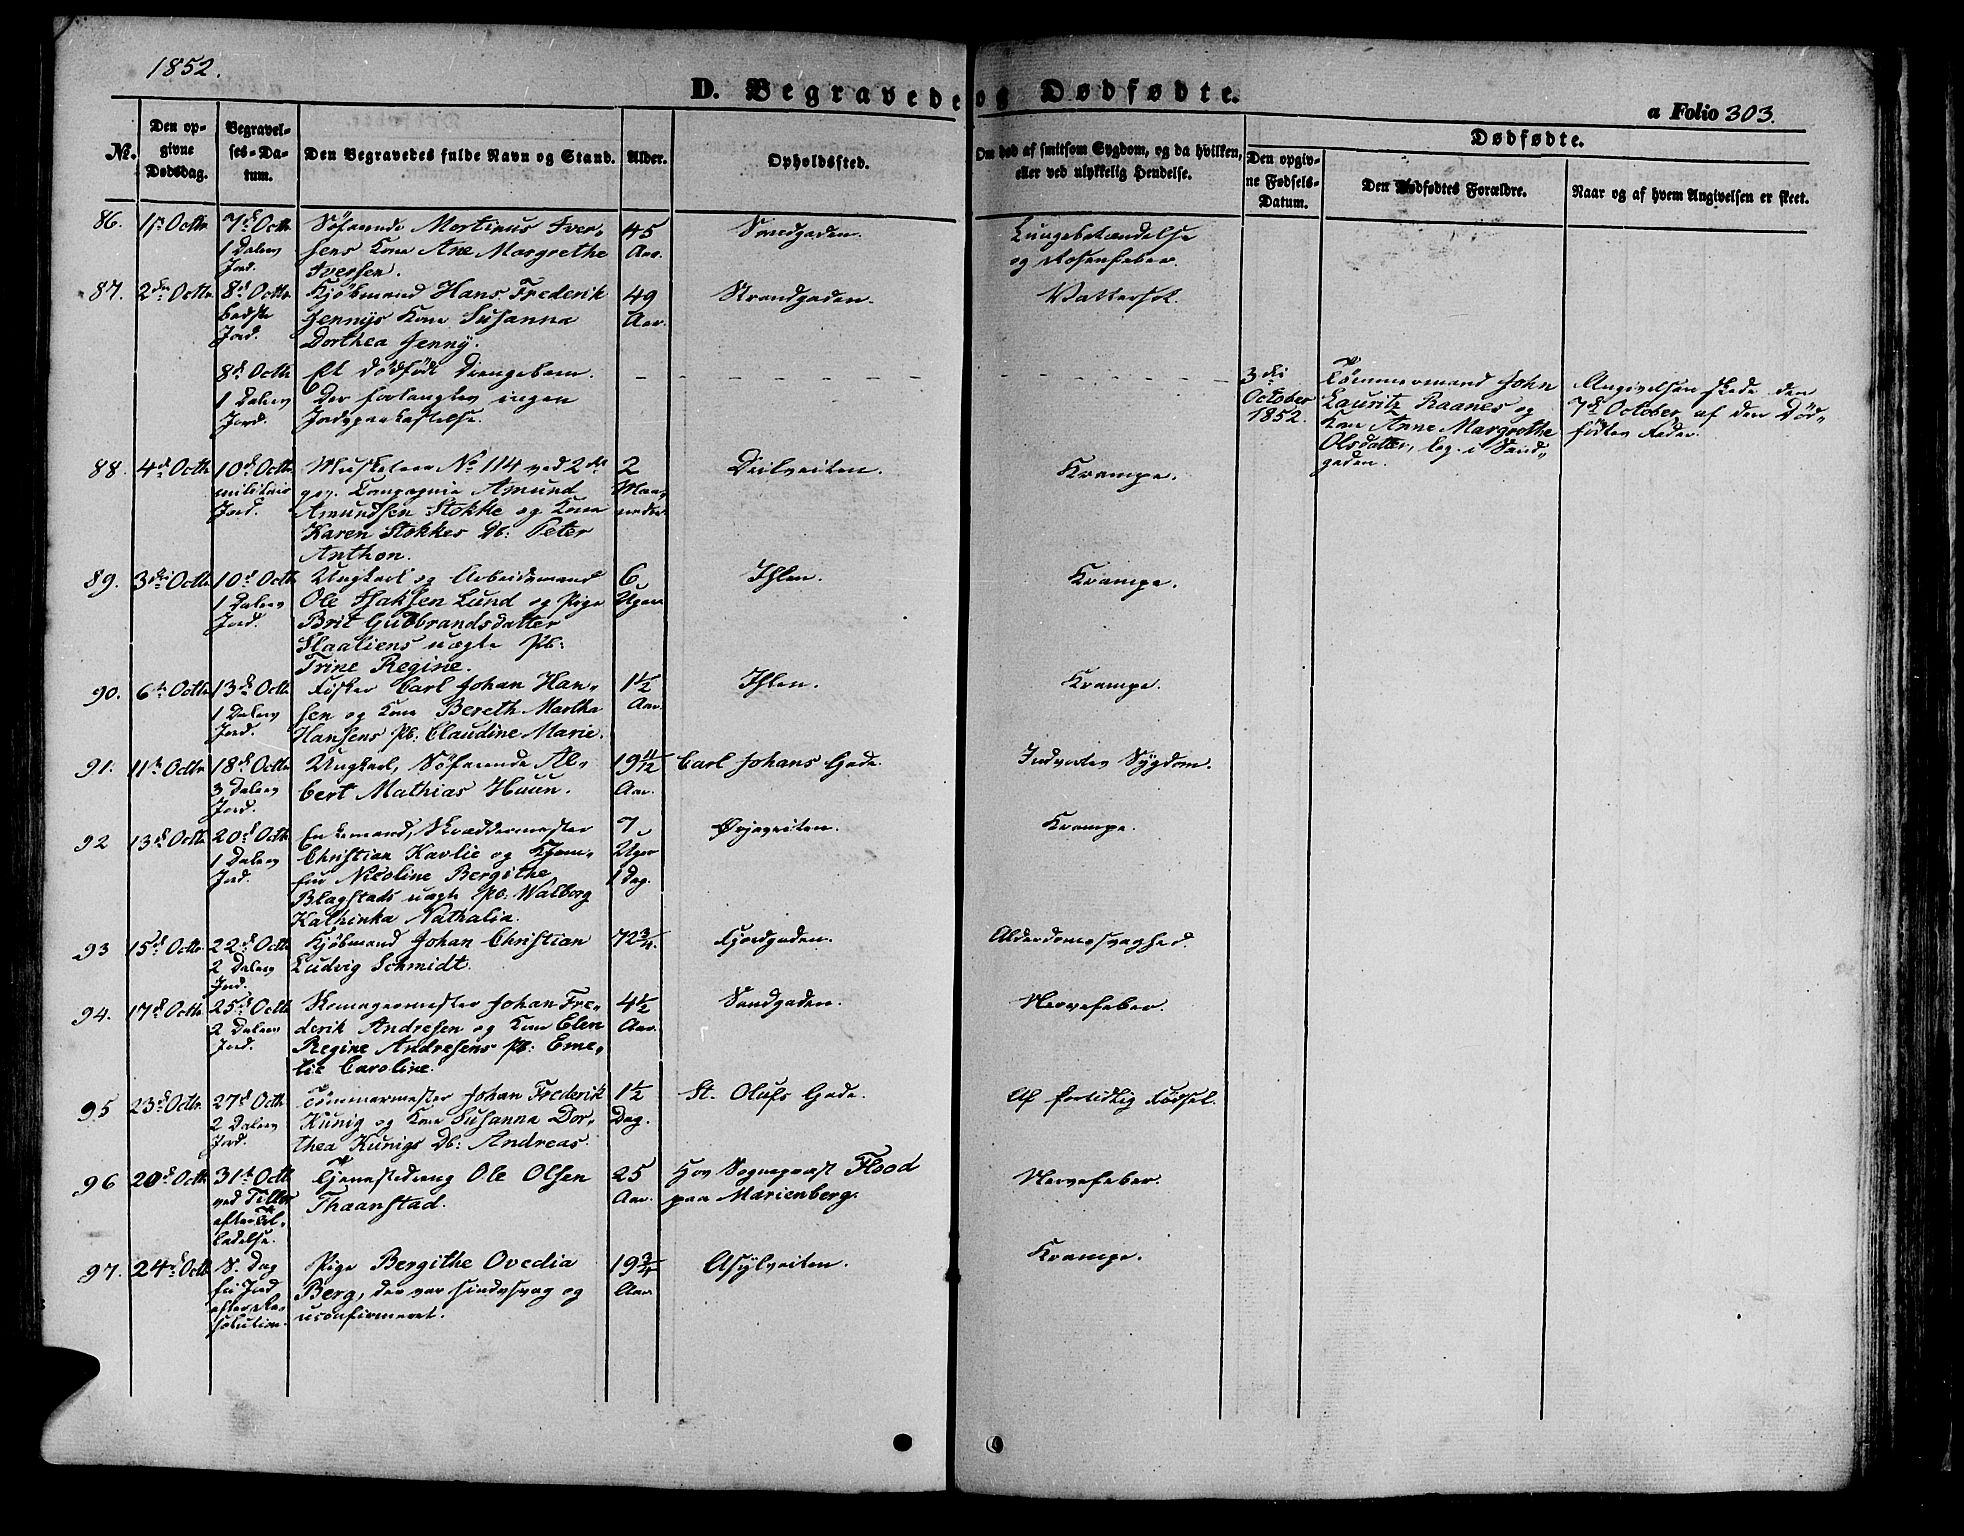 1852.
D. Begravede og Dødfødte.
a Folio 303.
No.
Den opgivne Dødsdag.
Begravelses-Datum.
Den Begravedes fulde Navn og Stand.
Alder.
Opholdssted.
Om død af smitsom Sygdom, og da hvilken,
eller ved ulykkelig Hendelse.
Dødfødte.
Den opgivne Fødsels-Datum.
Den Dødfødtes Forældre.
Naar og af hvem Angivelsen er skeet.
86. 1ste Octbr 7de Octbr Söfarende Martinus Iver- 45 Sandgaden. Lungebetændelse
1 Dalers sens Kone Ane Margrethe Aar. og Rosenfeber.
Jord. Iversen.
87. 2den Octbr 8de Octbr Kjöbmand Hans Frederik 49 Strandgaden. Vattersot.
bedste Jennys Kone Susanna Aar.
Jord. Dorthea Jenny.
8de Octbr Et dödfödt Drengebarn. 3die Tömmermand John Angivelsen skede den
1 Dalers Der forlangtes ingen October Lauritz Raanes og 7de October af den Död-
Jord. Jordpaakastelse. 1852. Kone Anne Margrethe födtes Fader.
Olsdatter, log. i Sand-
gaden.
88. 4de Octbr 10de Octbr Musketeer No 114 ved 2det 2 Krampe.
militair Compagnie Amund Maa-
Jord. Amundsen Stokke og Kone neder.
Karen Stokkes Db: Peter
Anthon.
89. 3die Octbr 10de Octbr Ungkarl og Arbeidsmand 6 Ihlen. Krampe.
1 Dalers Ole Isaksen Lund og Pige Uger.
Jord. Brit Gudbrandsdatter
Slaaliens uægte Pb:
Trine Regine.
90. 6te Octbr 13de Octbr Fisker Carl Johan Han- 1½ Ihlen. Krampe.
1 Dalers sen og Kone Bereth Martha Aar.
Jord. Hansens Pb: Claudine Marie.
91. 11te Octbr 18de Octbr Ungkarl, Söfarende Al- 19 11/12 Carl Johans Gade. Indvortes Sygdom.
3 Dalers bert Mathias Huun. Aar.
Jord.
92 13de Octbr 20de Octbr Enkemand, Skræddermester 7 Örjaveiten. Krampe.
1 Dalers Christian Kavlie og Jom- Uger
Jord. fru Nicoline Bergithe 1 Dag.
Blagstads uægte Pb: Walborg
Kathinka Nathalia.
93 15de Octbr 22de Octbr Kjöbmand Johan Christian 72¾ Fjordgaden. Alderdomssvaghed.
2 Dalers Ludvig Schmidt.
Jord.
94. 17de Octbr 25de Octbr Skomagermester Johan Fre- 4½ Sandgaden. Nervefeber.
2 Dalers derik Andresen og Kone Elen Aar.
Jord. Regine Andresens Pb: Eme-
lie Caroline.
95 23de Octbr 27de Octbr Tömmermester Johan Frederik 1½ St. Olufs Gade. Af fortidlig Födsel.
2 Dalers Kunig og Kone Susanna Dor- Dag.
Jord. thea Kunigs Db: Andreas.
96 20de Octbr 31te Octbr Tjenestedreng Ole Olsen 25 Hos Sognepræst Flood Nervefeber.
ved Tiller Thaanstad. Aar. paa Marienberg.
efter Til-
ladelse.
97. 24de Octbr S. Dag Pige Bergithe Ovedia 19¾ Asylveiten. Krampe.
fri Jord Berg, der var sindssvag og Aar.
efter Re- uconfirmeret.
solution.